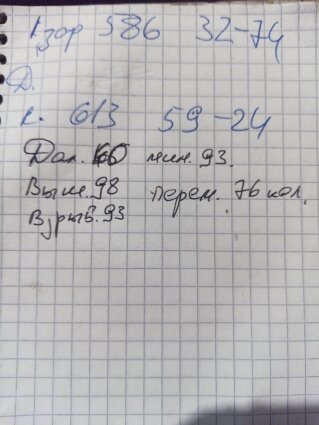 1 зор 586 32-74
Д.
к. 613 59-24
Дал. 60 мин. 93.
Выш. 98 перем. 76 кол.
Взрыв. 93